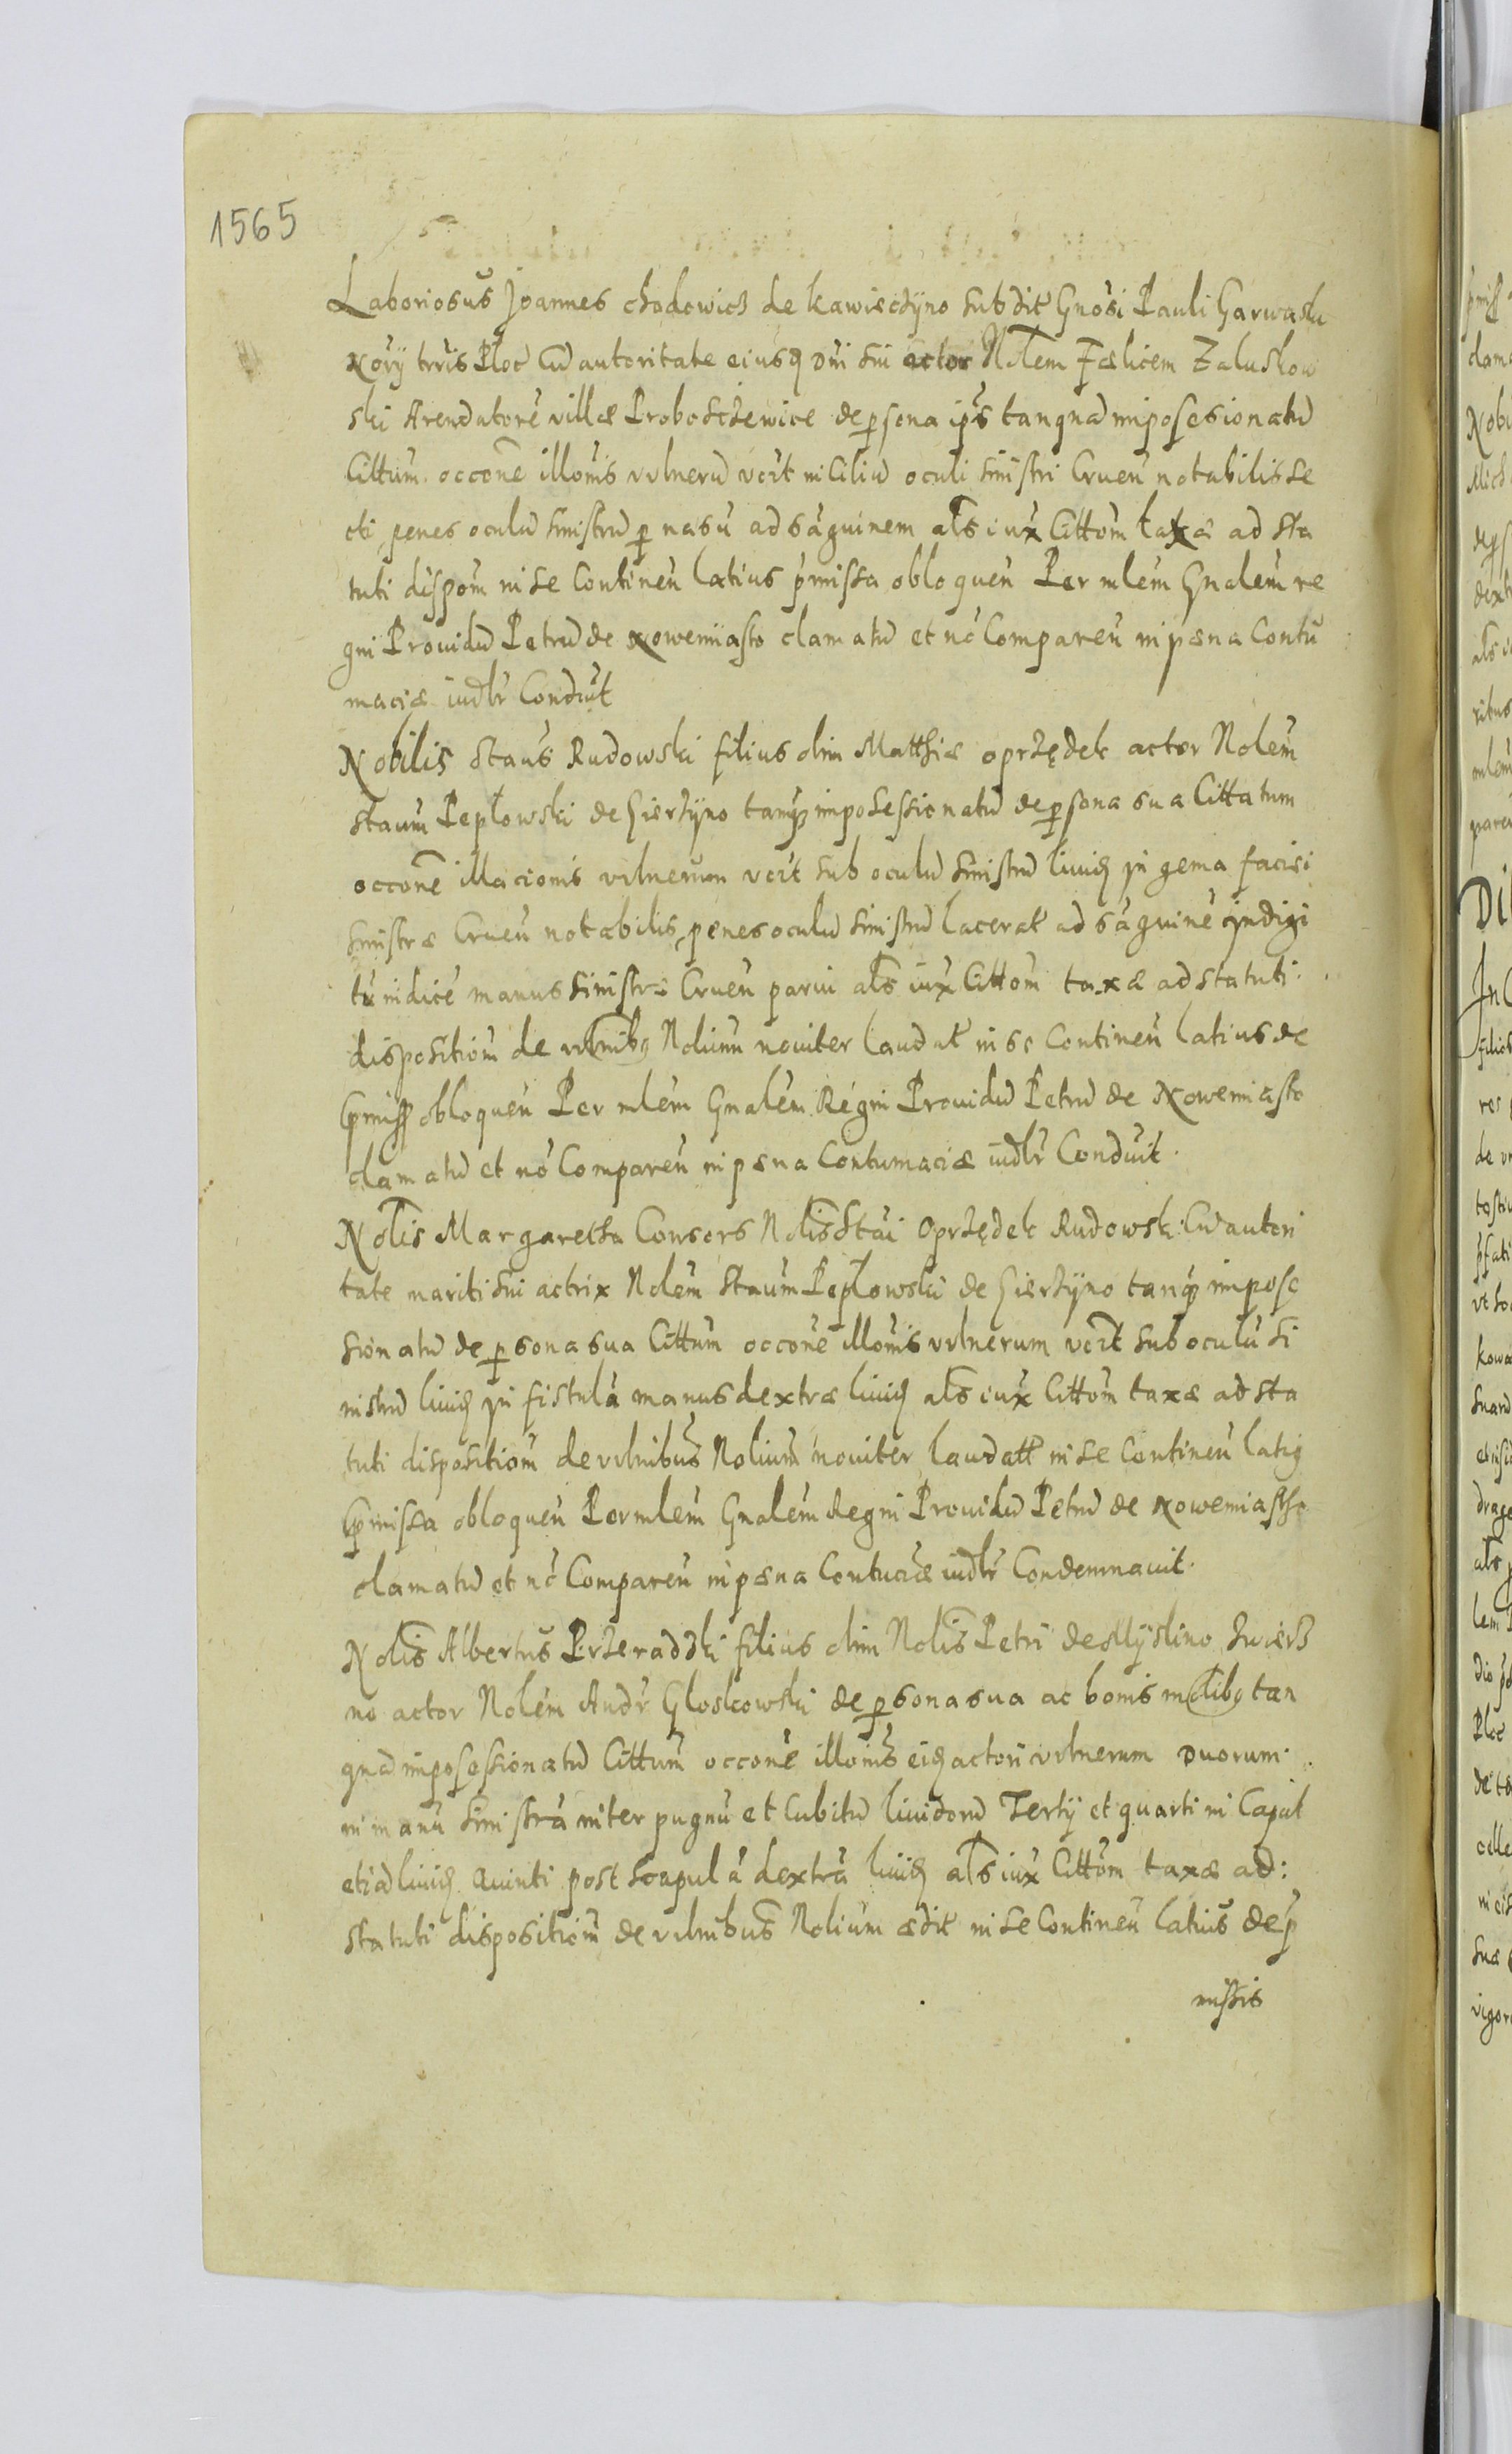 1565
Laboriosus Joannes chodowicz de kawieczyno subdit Gnosi Pauli Garwasky
Nory trris Ploc Cu autoritate eiusq dni sui actor Nolem Fælicem Zaluskow
ski Arendatore villæ Proboszczewice de psona ips tanqua imposesionatu
Cittum occone illonis vulneru vcit in Ciliu oculi sinistri Cruen notabilis se
cti penes oculu sinistru p nasu ad saguinem als iux Cittom taxæ ad sta
tuti dispom in se Continen latius pmissa obloquen Per mlem Gnalem re
gni Prouidu Petru de Nowemiasto clamatu et no Comparen in pæna Contu
maciæ iudlr Conduit
Nobilis Staus Rudowski filius olim Matthiæ oprzędek actor Nolem
Staum Peplowski de Gierzyno tanq imposessionatu de psona sua Cittatum
occone illacionis vulnerum vcit sub oculu sinistru liuiq in gema faciei
sinistræ Cruen notabilis penes oculu sinistru lacerat ad saguine in digi
tu indice manus sinistræ Cruen parui als iux Cittom taxæ ad statuti
dispositiom de vulnibq Nolium nouiter laudat in se Continen latius de
pmiss obloquen Per mlem Gnalem Regni Prouidu Petru de Nowemiasto
clamatu et no Comparen in pæna Contumaciæ iudlr Conduit.
Nolis Margaretha Consors Nolis Stai Oprzędek Rudowski Cu autori
tate mariti sui actrix Nolem Staum Peplowski de Gierzyno tanq impose
sionatu de psona sua Cittum occone illonis vulnerum vcit sub oculu si
nistru liuiq in fistula manus dextræ liuiq als iux Cittom taxæ ad sta
tuti dispositiom de vulnibus Nolium nouiter laudatt in se Continen latiq
pmissa obloquen Per mlem Gnalem Regni Prouidu Petru de Nowemiastho
clamatu et no Comparen in pæna Contuciæ iudlr Condemnauit.
Nolis Albertus Przeradzki filius olim Nolis Petri de Myslino
no actor Nolem Andr Gloskowski de psona sua ac bonis mlibq tan
qua imposessionatu Cittum occone illonis eiq actori vulnerum duorum
in manu sinistra inter pugnu et Cubitu liuidoru Tertij et quarti in Caput
etia liuiq Quinti post scapula dextra liuiq als iux Cittom taxæ ad:
statuti dispositiom de vulnibus Nolium ædit in se Continen latius de p
missis